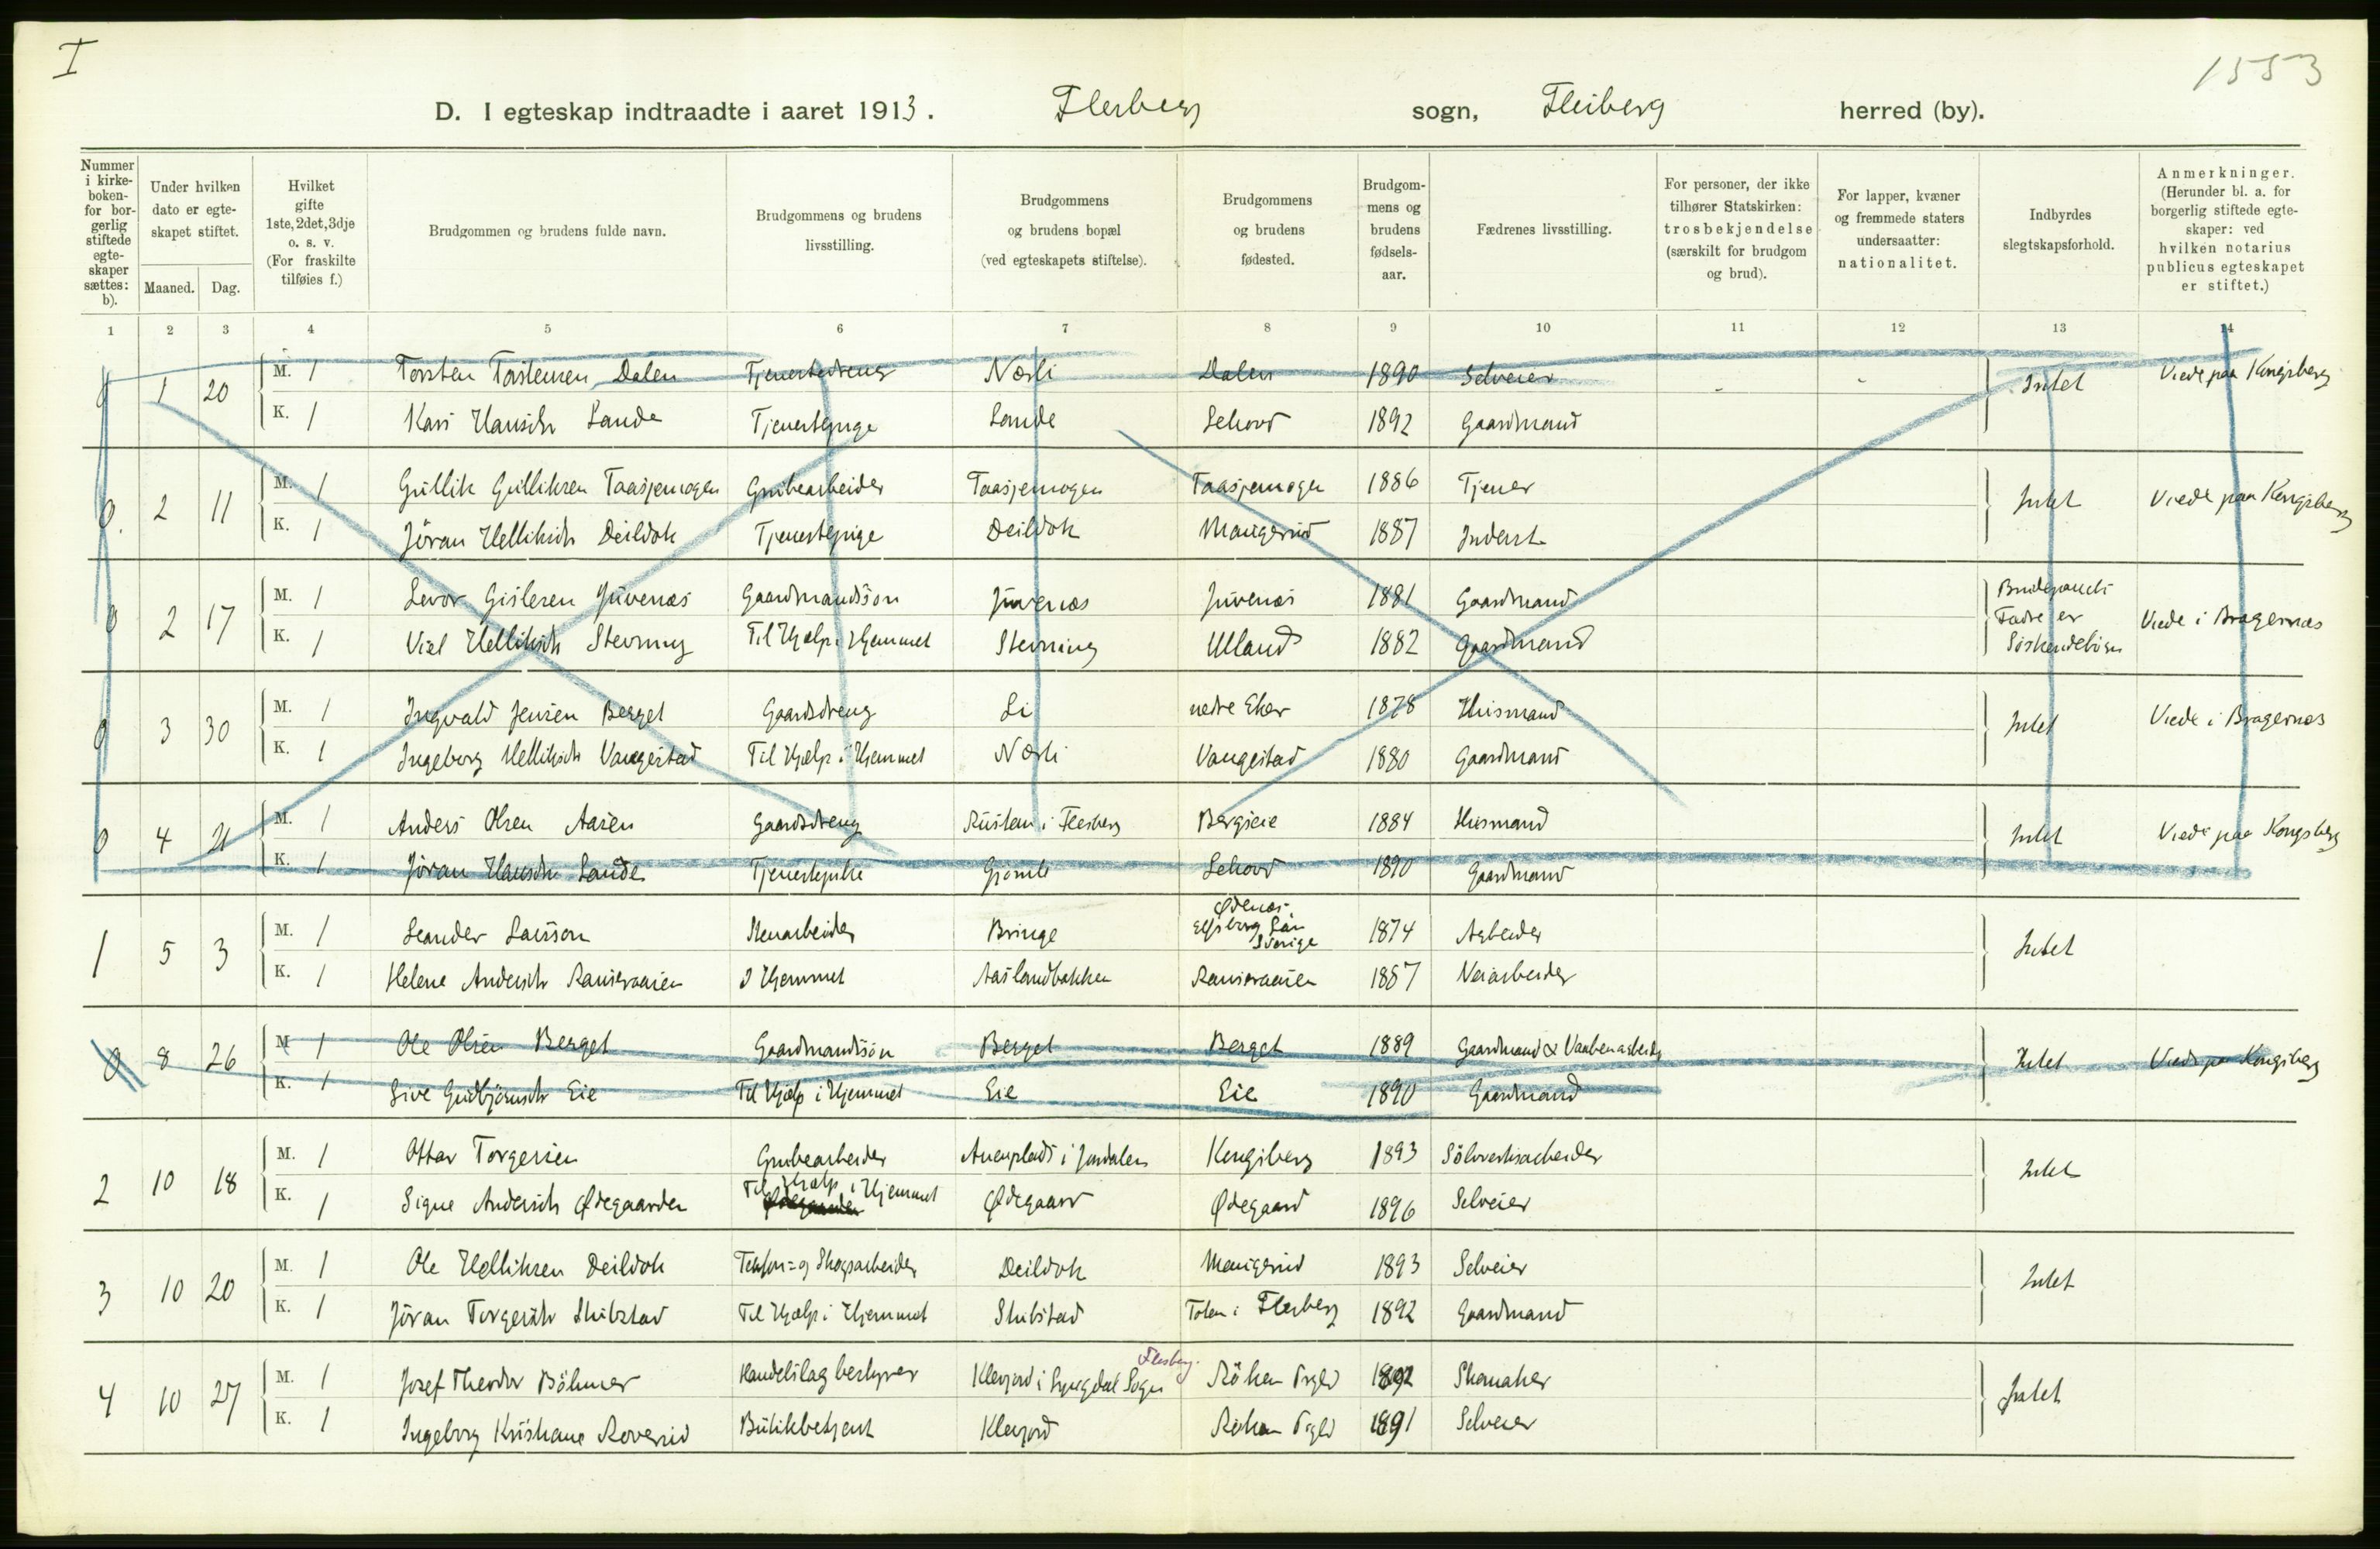 I
1553
D. I egteskap indtraadte i aaret 1913. Flesberg sogn, Flesberg herred (by).
Nummer i kirke-boken- for bor-gerlig stiftede egte-skaper sættes: b).
Under hvilken dato er egte-skapet stiftet.
Maaned. Dag.
Hvilket gifte 1ste, 2det, 3dje o. s. v. (For fraskilte tilføies f.)
Brudgommen og brudens fulde navn.
Brudgommens og brudens livsstilling.
Brudgommens og brudens bopæl (ved egteskapets stiftelse).
Brudgommens og brudens fødested.
Brudgom-mens og brudens fødsels-aar.
Fædrenes livsstilling.
For personer, der ikke tilhører Statskirken: trosbekjendelse (særskilt for brudgom og brud).
For lapper, kvæner og fremmede staters undersaatter: nationalitet.
Indbyrdes slegtskapsforhold.
Anmerkninger. (Herunder bl. a. for borgerlig stiftede egte-skaper: ved hvilken notarius publicus egteskapet er stiftet.)
1 2 3 4 5 6 7 8 9 10 11 12 13 14
0 1 20 M. 1 Torsten Torstensen Dalen Tjenestedreng Nærli Dalen 1890 Selveier - - Intet Viede paa Kongsberg
K. 1 Kari Hansdtr Lande Tjenestepige Lande Lehovd 1892 Gaardmand
0. 2 11 M. 1 Gullik Gulliksen Taasjemogen Grubearbeider Taasjemogen Taasjemogen 1886 Tjener Intet Viede paa Kongsberg
K. 1 Jöran Helliksdtr Deildok Tjenestepige Deildok Maugerud 1887 Inderst
0 2 17 M. 1 Levor Gislesen Juvenæs Gaardmandssön Juvenæs Juvenæs 1881 Gaardmand Brudeparrets Fædre er Söskendebörn Viede i Bragernæs
K. 1 Helliksdtr Stevning Til Hjælp i Hjemmet Stevning Ulland 1882 Gaardmand
0 3 30 M. 1 Ingvald Jensen Berget Gaardsdreng Li nedre Eker 1878 Husmand Intet Viede i Bragernæs
K. 1 Ingeborg Helliksdtr Vangestad Til Hjælp i Hjemmet Nærli Vangestad 1880 Gaardmand
0 4 21 M. 1 Anders Olsen Aasen Gaardsdreng i Flesberg 1884 Husmand Intet Viede paa Kongsberg
K. 1 Jöran Hansdtr Lande Lehovd 1890 Gaardmand
1 5 3 M. 1 Leander Larsson Stenarbeider Bringe Ødenæs Elfsborg Län Sverige 1874 Arbeider Intet
K. 1 Helene Andersdtr Ramsraasen I Hjemmet Aaslandbakken Ramsraasen 1887 Veiarbeider
0 8 26 M 1 Ole Olsen Berget Gaardmandssön Berget Berget 1889 Gaardmand & Vaabenarbeider Intet Viede paa Kongsberg
K. 1 Sive Gudbjörnsdtr Eie Til Hjælp i Hjemmet Eie Eie 1890 Gaardmand
2 10 18 M. 1 Ottar Torgersen Grubearbeider i Jondalen Kongsberg 1893 Sölvverksarbeider Intet
K. 1 Signe Andersdtr Ødegaarden Til Hjælp i Hjemmet Ødegaard Ødegaard 1896 Selveier
3 10 20 M. 1 Ole Helliksen Deildok Telefon= og Skogsarbeider Deildok Maugerud 1893 Selveier Intet
K. 1 Jöran Torgersdtr Stubstad Til Hjælp i Hjemmet Stubstad i Flesberg 1892 Gaardmand
Flesberg.
4 10 27 M. 1 Josef Theodor Böhmer Handelslagbestyrer Klevjord i Lyngdal Sogn Röken Prgld 1892 Skomaker Intet
K. 1 Ingeborg Kristiane Roverud Butikbetjent Klevjord Röken Prgld 1891 Selveier